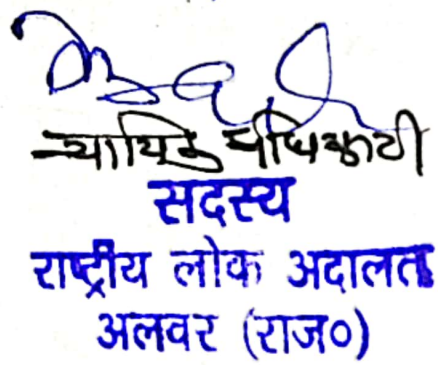 न्यायिक अधिकारी
सदस्य
राष्ट्रीय लोक अदालत
अलवर (राज०)